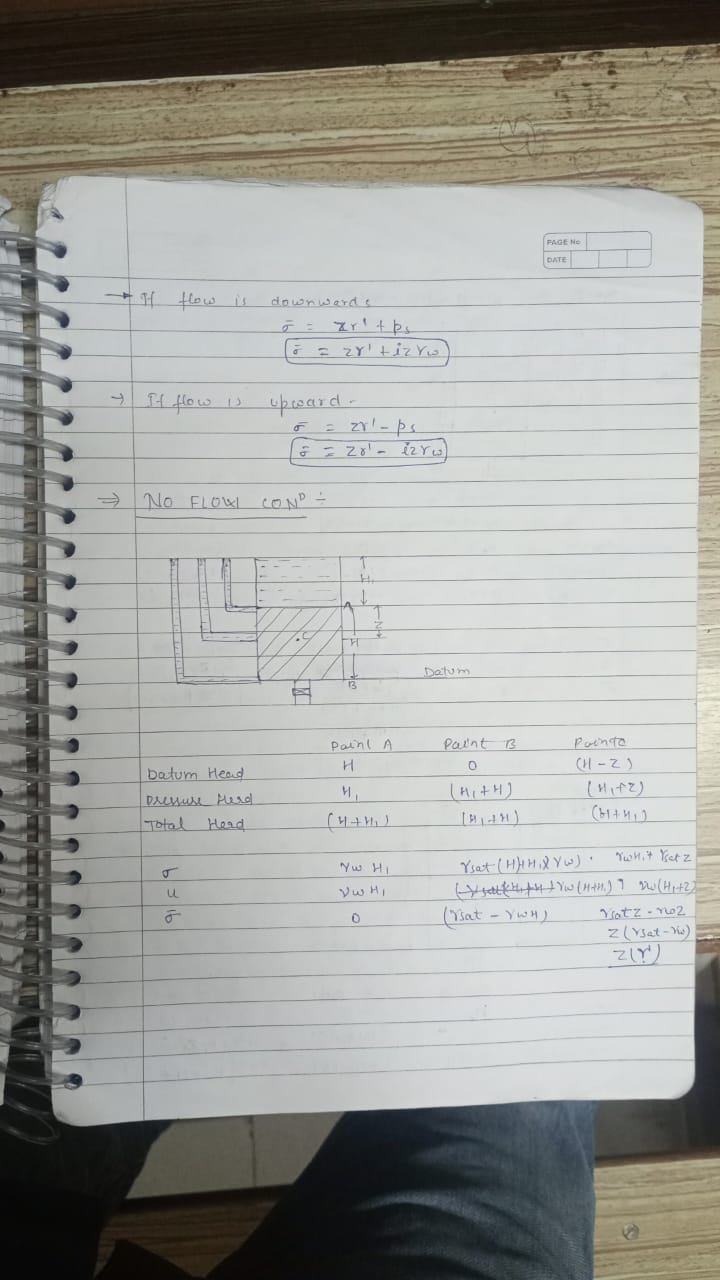 PAGE No
DATE
→ If flow is downwards
σ̄ = zγ' + ps
σ̄ = zγ' + izγw
→ If flow is upward -
σ̄ = zγ' - ps
σ̄ = zγ' - izγw
⇒ NO FLOW CONᴰ ÷
H₁
Z
C
H
B
Datum
Point A Point B Point C
Datum Head H 0 (H-Z)
Pressure Head H₁ (H₁+H) (H₁+Z)
Total Head (H+H₁) (H₁+H) (H+H₁)
σ γw H₁ γsat(H)+H₁(γw) · γwH₁+γsatZ
u γw H₁ γw(H+H₁) γw(H₁+Z)
σ̄ 0 (γsat - γwH) γsatZ - γwZ
Z(γsat-γw)
Z(γ')